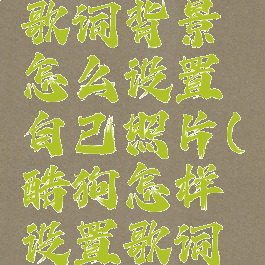 歌词背景
怎么设置
自己照片(
酷狗怎样
设置歌词